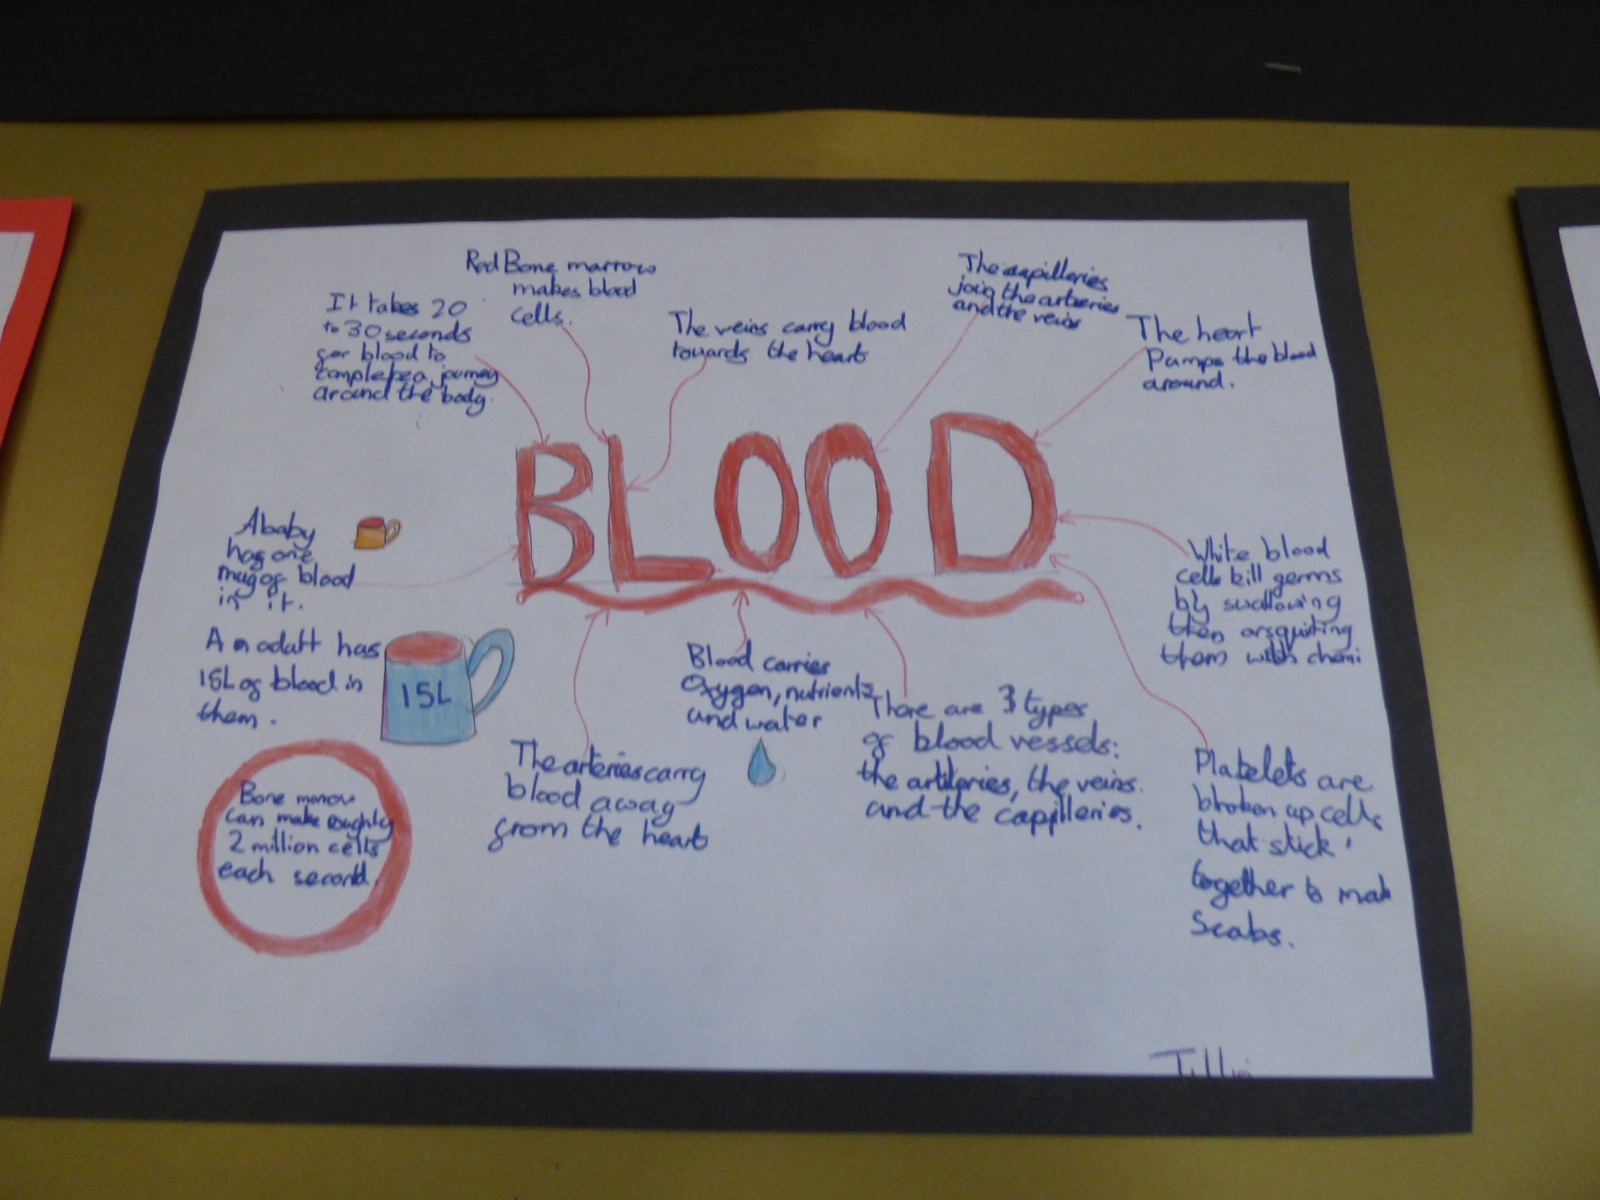 Red Bone marrow
makes blood
cells.
It takes 20
to 30 seconds
for blood to
complete a journey
around the body.
The veins carry blood
towards the heart
The capilleries
join the arteries
and the veins
The heart
Pumps the blood
around.
BLOOD
A baby
has one
mug of blood
in it.
An adult has
15L of blood in
them.
15L
Bone marrow
can make roughly
2 million cells
each second.
The arteries carry
blood away
from the heart
Blood carries
Oxygen, nutrients
and water
There are 3 types
of blood vessels:
the artileries, the veins
and the capilleries.
White blood
cells kill germs
by swallowing
them or squirting
them with chemi
Platelets are
broken up cells
that stick
together to mak
Scabs.